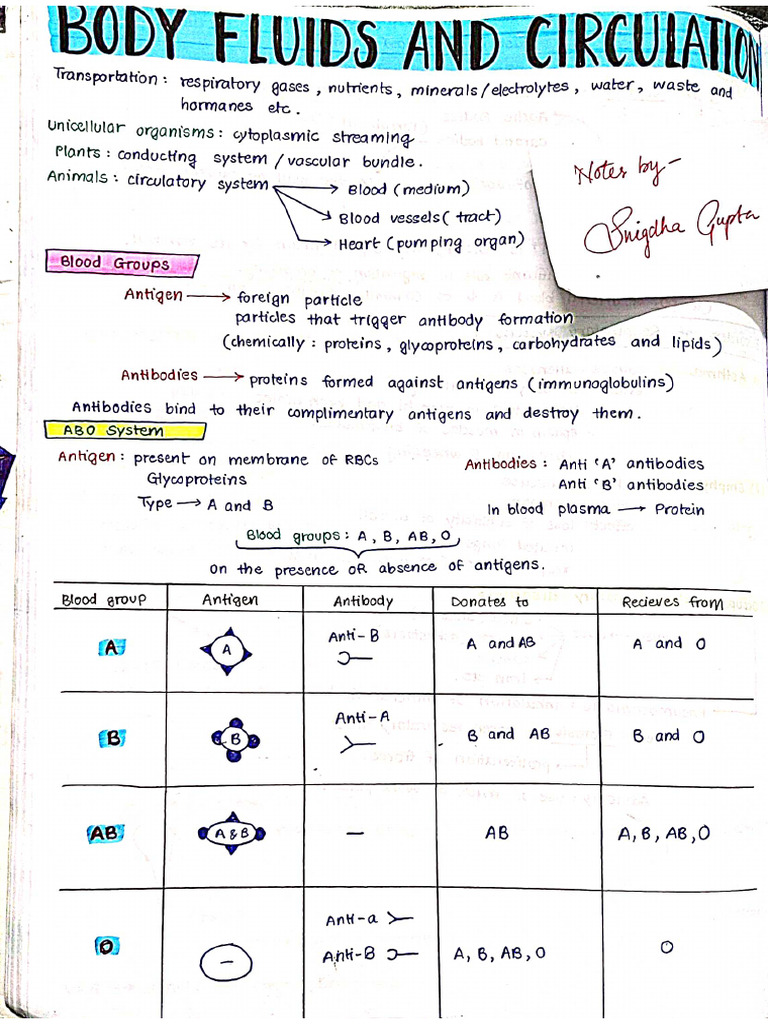 BODY FLUIDS AND CIRCULATION
Transportation : respiratory gases, nutrients, minerals/electrolytes, water, waste and
hormanes etc.
Unicellular organisms : cytoplasmic streaming
Plants : conducting system / vascular bundle.
Animals : circulatory system → Blood (medium)
→ Blood vessels (tract)
→ Heart (pumping organ)
Notes by -
Snigdha Gupta
Blood Groups
Antigen → foreign particle
particles that trigger antibody formation
(chemically : proteins, glycoproteins, carbohydrates and lipids)
Antibodies → proteins formed against antigens (immunoglobulins)
Antibodies bind to their complimentary antigens and destroy them.
ABO System
Antigen : present on membrane of RBCs
Glycoproteins
Type → A and B
Antibodies : Anti 'A' antibodies
Anti 'B' antibodies
In blood plasma → Protein
Blood groups : A, B, AB, O
on the presence or absence of antigens.
Blood group Antigen Antibody Donates to Recieves from
A A Anti-B A and AB A and O
B B Anti-A B and AB B and O
AB A & B – AB A, B, AB, O
O – Anti-a Anti-B A, B, AB, O O